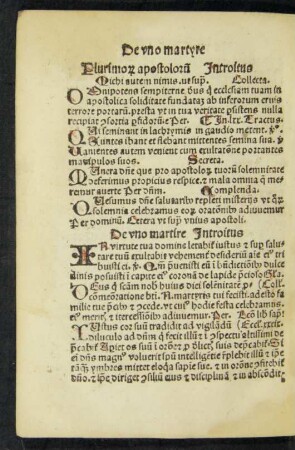 De vno martyre
Plurimoꝝ apostolorū Introitus
Michi autem nimis. vt sup̄. Collecta.
Omnipotens sempiterne deus q̄ ecclesiam tuam in
apostolica soliditate fundatā ab inferorum eruis
terrore portarū. presta vt in tua veritate psistens nulla
recipiat ꝯsortia pſidorū. Per. Tractus.
Qui seminant in lachrymis in gaudio metent. ℣.
Euntes ibant et flebant mittentes semina sua. ℣.
Uenientes autem venient cum exultatōne portantes
manipulos suos. Secreta.
Munera dn̄e que pro apostoloꝝ tuoꝝ solemnitate
deferimus propicius respice. et mala omnia q̄ me
remur auerte Per dn̄m. Complenda.
Quesumus dn̄e salutarib⁹ repleti misterijs vt quoꝝ
solemnia celebramus eoꝝ orationib⁹ adiuuemur
Per dominū. Cetera vt sup̄ vnius apostoli.
De vno martire Introitus
IN virtute tua domine letabit̄ iustus et sup̄ saluta
re tuū exultabit vehementer desideriū aīe ei⁹ tri
buisti ei. ℣. Qm̄ p̄uenisti eū ī bn̄dictiōib⁹ dulce
dinis posuisti ī capite ei⁹ coronā de lapide p̄cioso
Deus q̄ hui⁹ diei solēnitatē
cōmemoratiōe bti N. martyris tui fecisti. adesto fami
lie tue p̄cib⁹ ꝯcede. vt cui⁹ hodie festa celebramus.
ei⁹ merit̄. ⁊ itercessiōib⁹ adiuuemur. Per.
Iustus cor suū tradidit ad vigilādū
diluculo ad dn̄m q̄ fecit illū ⁊ ī ꝯspectu altissimi de
p̄cabit̄. Aperiet os suū ī orōne ⁊ p̄ delict̄. suis dep̄cabit̄. Si
ei dn̄s magn⁹ voluerit spū intelligētie replebit illū ⁊ ip̄e
tāq̄ ymbres mittet eloq̄a sapiē sue. ⁊ in orōne ꝯfitebit̄
dn̄o. ⁊ ip̄e diriget ꝯsiliū eius ⁊ disciplinā ⁊ in abscōdit̄.